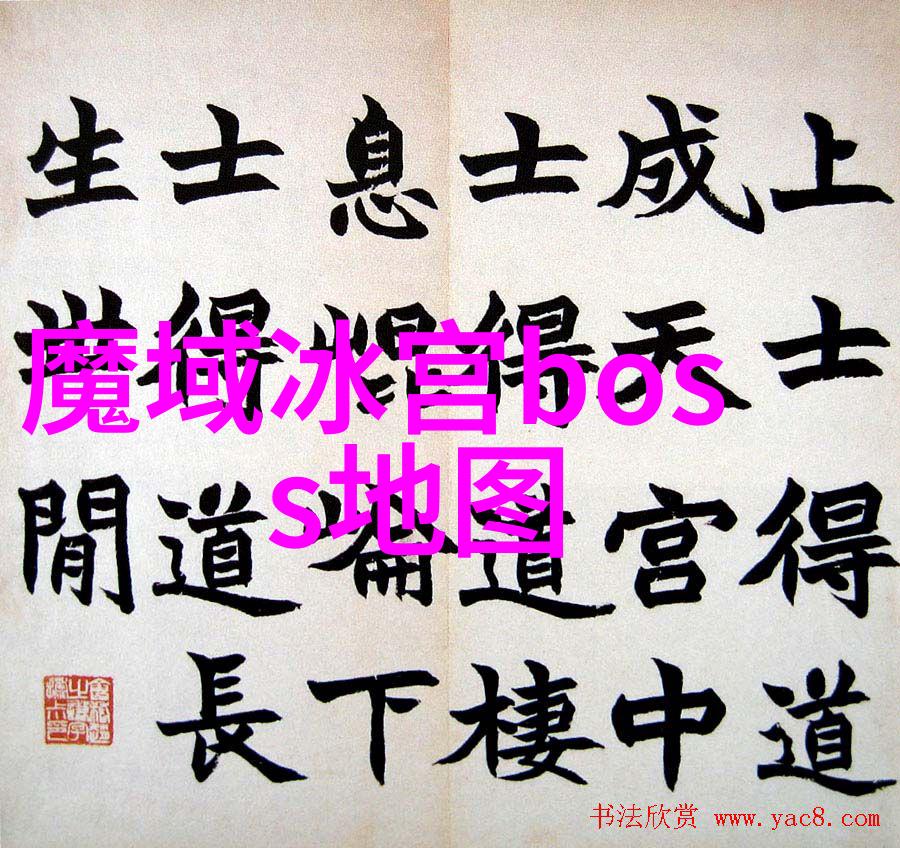 上士得道
成天宮中
士得道棲
息崐崘下
士得道長
生世閒
魔域冰宫bos
s地图
书法欣赏 www.yac8.com